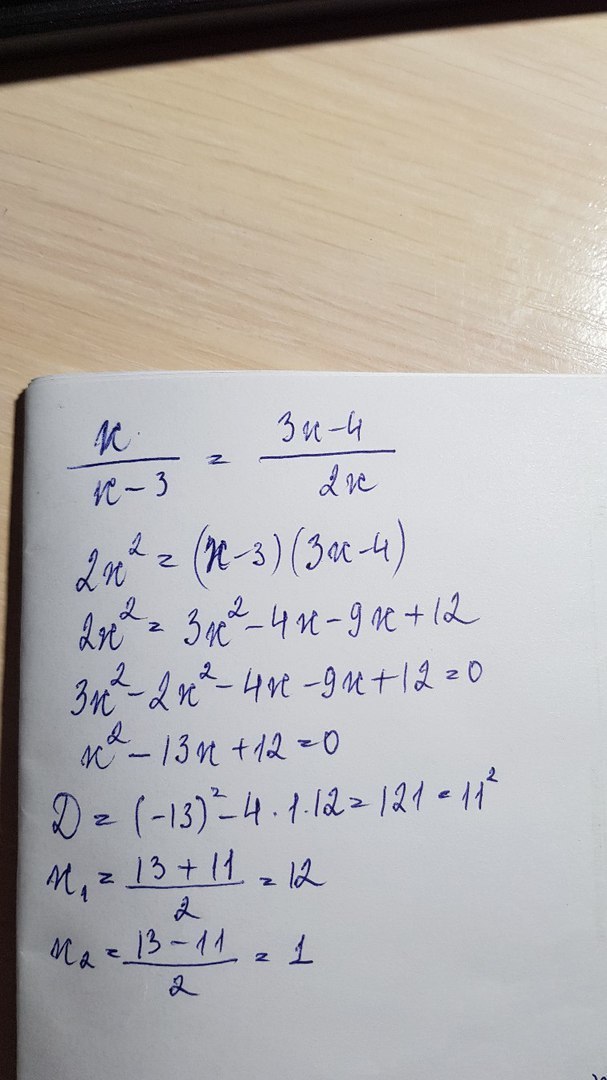 x/(x-3) = (3x-4)/(2x)
2x² = (x-3)(3x-4)
2x² = 3x²-4x-9x+12
3x²-2x²-4x-9x+12=0
x²-13x+12=0
D = (-13)²-4·1·12=121=11²
x₁ = (13+11)/2 = 12
x₂ = (13-11)/2 = 1